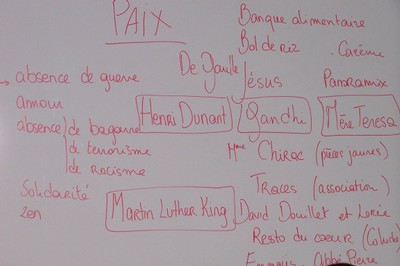 PAIX
→ absence de guerre
amour
absence de bagarre
de terrorisme
de racisme
Solidarité
zen
De Gaulle
Jésus
Henri Dunant
Gandhi
Mère Teresa
Martin Luther King
Banque alimentaire
Bol de riz . Carême
Panoramix
Mme Chirac (pièces jaunes)
Traces (association)
David Douillet et Lorie
Resto du coeur (Coluche
Emmaus Abbé Pierre